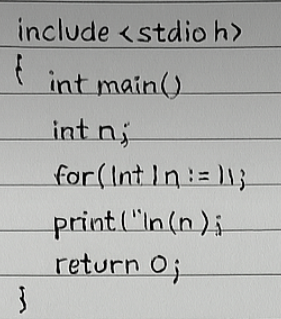 include <stdio h>
{ int main()
int n;
for(Int In := )1;
print("In(n);
return 0;
}